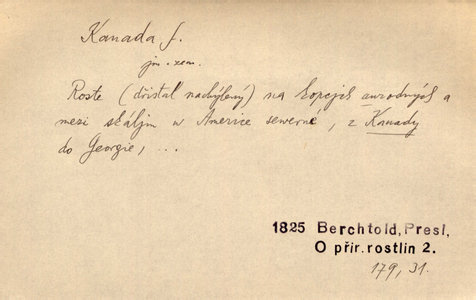 Kanada f.
jm. zem.
Roste (dřistal nachýlený) na kopcjch aurodných a
mezi skáljm w Americe sewerné, z Kanady
do Georgie, ...
1825 Berchtold, Presl,
O přir. rostlin 2.
179, 31.